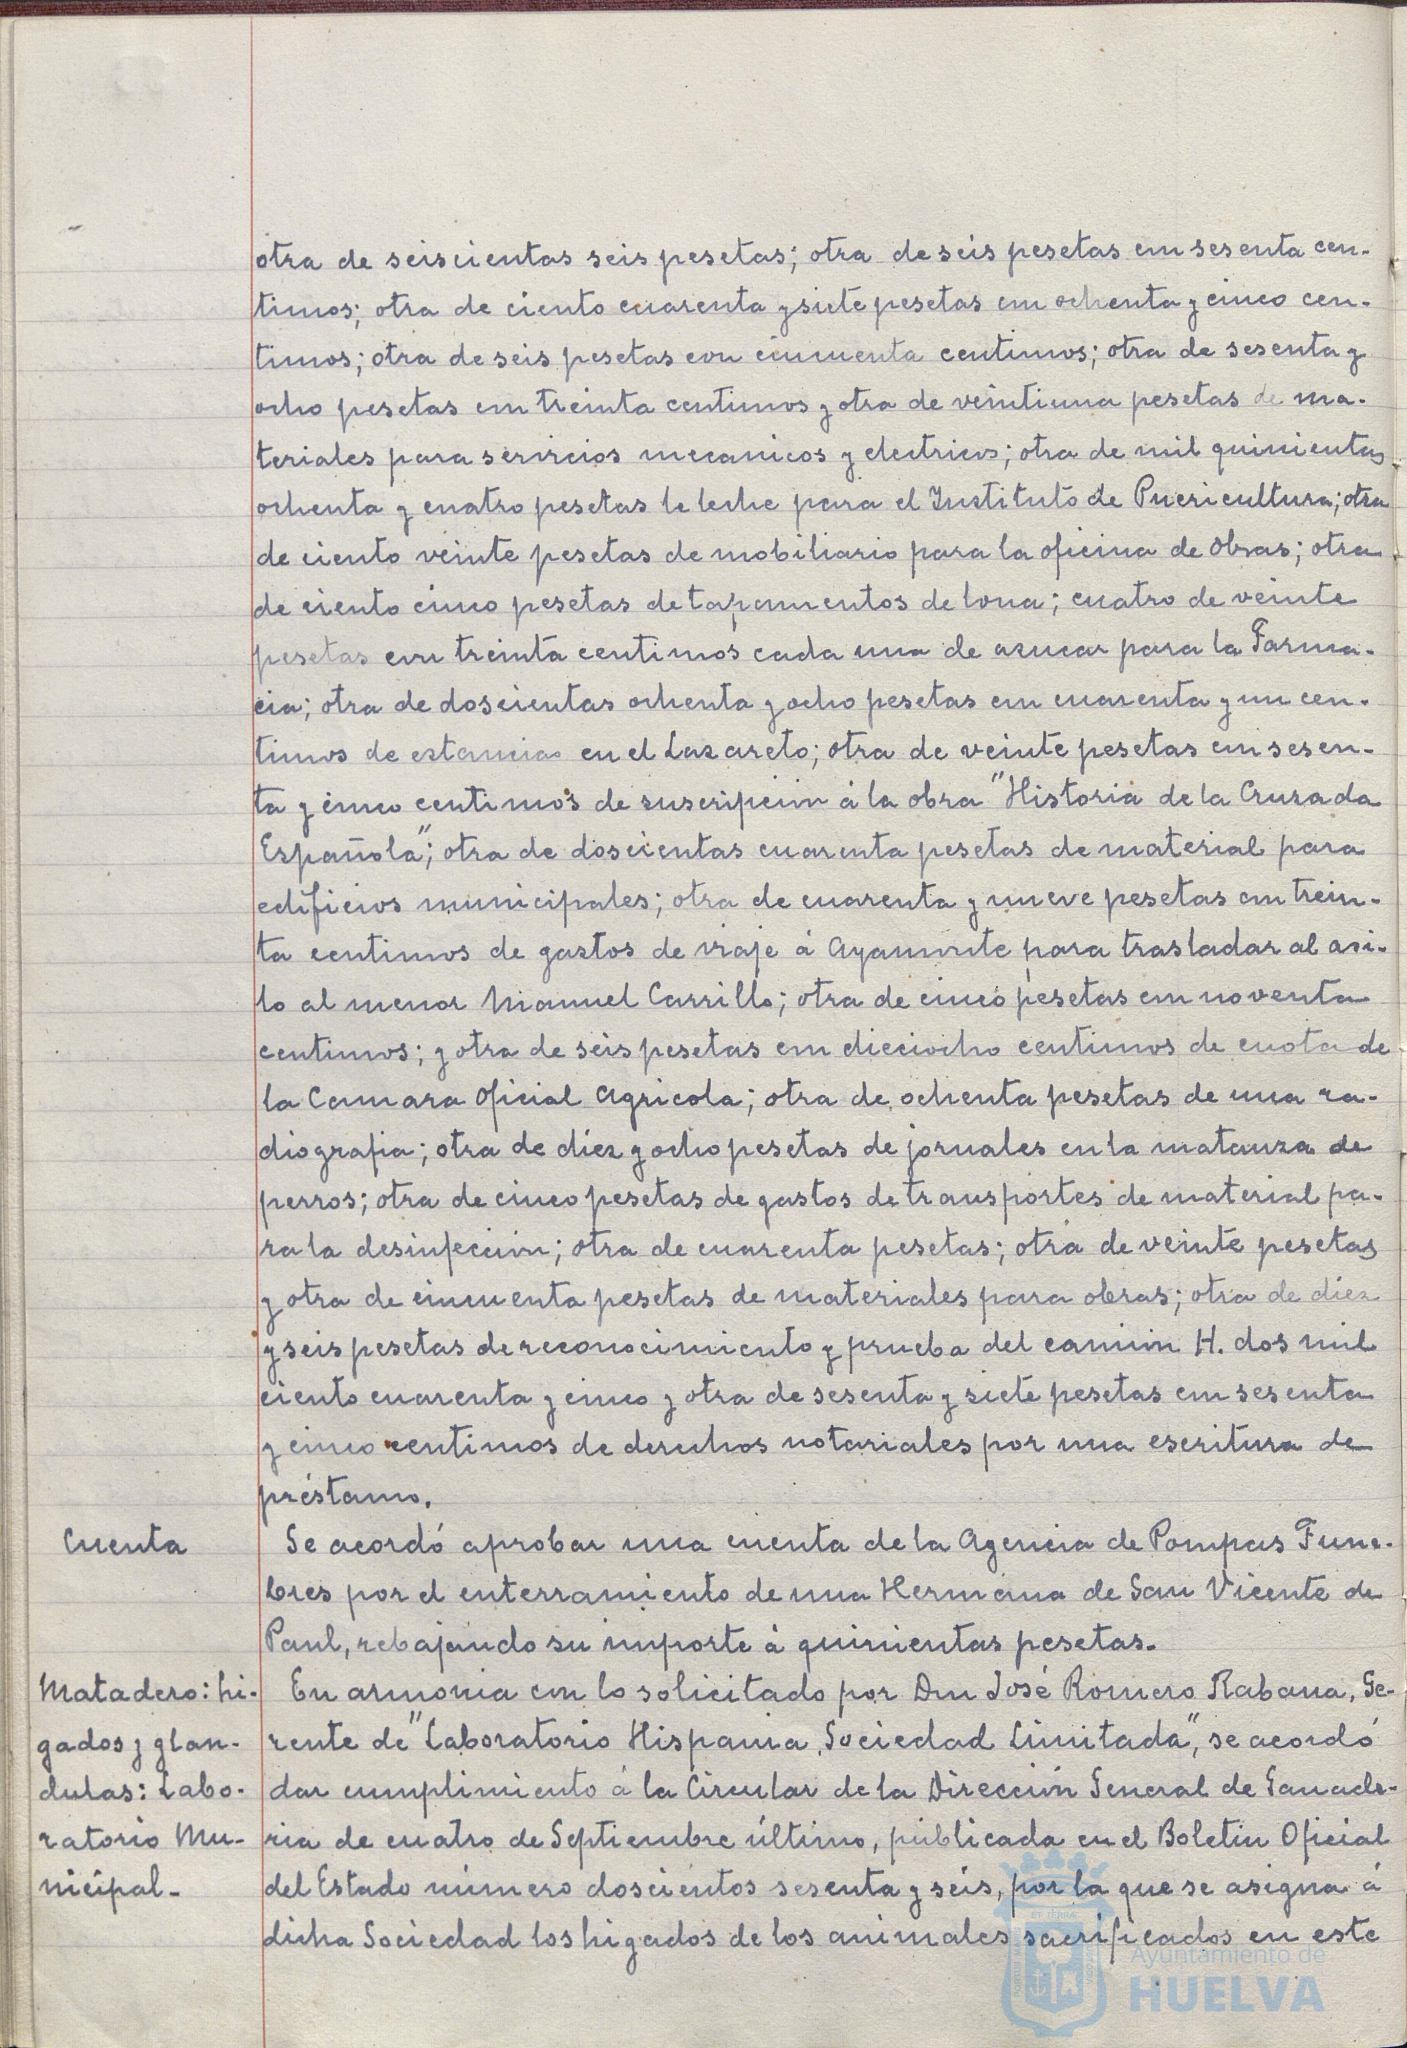 otra de seiscientas seis pesetas; otra de seis pesetas con sesenta cen-
timos; otra de ciento cuarenta y siete pesetas con ochenta y cinco cen-
timos; otra de seis pesetas con cincuenta centimos; otra de sesenta y
ocho pesetas con treinta centimos y otra de veintiuna pesetas de ma-
teriales para servicios mecanicos y electricos; otra de mil quinientas
ochenta y cuatro pesetas de leche para el Instituto de Puericultura; otra
de ciento veinte pesetas de mobiliario para la oficina de Obras; otra
de ciento cinco pesetas de tapamentos de lona; cuatro de veinte
pesetas con treinta centimos cada una de azucar para la Farma-
cia; otra de doscientas ochenta y ocho pesetas con cuarenta y un cen-
timos de estancias en el Lazareto; otra de veinte pesetas con sesen-
ta y cinco centimos de suscripción á la obra "Historia de la Cruzada
Española"; otra de doscientas cuarenta pesetas de material para
edificios municipales; otra de cuarenta y nueve pesetas con trein-
ta centimos de gastos de viaje á Ayamonte para trasladar al asi-
lo al menor Manuel Carrillo; otra de cinco pesetas con noventa
centimos; y otra de seis pesetas con dieciocho centimos de cuota de
la Camara Oficial Agricola; otra de ochenta pesetas de una ra-
diografia; otra de diez y ocho pesetas de jornales en la matanza de
perros; otra de cinco pesetas de gastos de transportes de material pa-
ra la desinfección; otra de cuarenta pesetas; otra de veinte pesetas
y otra de cincuenta pesetas de materiales para obras; otra de diez
y seis pesetas de reconocimiento y prueba del camión H. dos mil
ciento cuarenta y cinco y otra de sesenta y siete pesetas con sesenta
y cinco centimos de derechos notariales por una escritura de
préstamo.
Cuenta
Se acordó aprobar una cuenta de la Agencia de Pompas Fune-
bres por el enterramiento de una Hermana de San Vicente de
Paul, rebajando su importe á quinientas pesetas.
Matadero: hi-
gados y glan-
dulas: Labo-
ratorio Mu-
nicipal.
En armonia con lo solicitado por Don José Romero Rabana, Ge-
rente de "Laboratorio Hispania, Sociedad Limitada", se acordó
dar cumplimiento á la Circular de la Dirección General de Ganade-
ria de cuatro de Septiembre último, publicada en el Boletin Oficial
del Estado número doscientos sesenta y seis, por la que se asigna á
dicha Sociedad los higados de los animales sacrificados en este
Ayuntamiento de
HUELVA